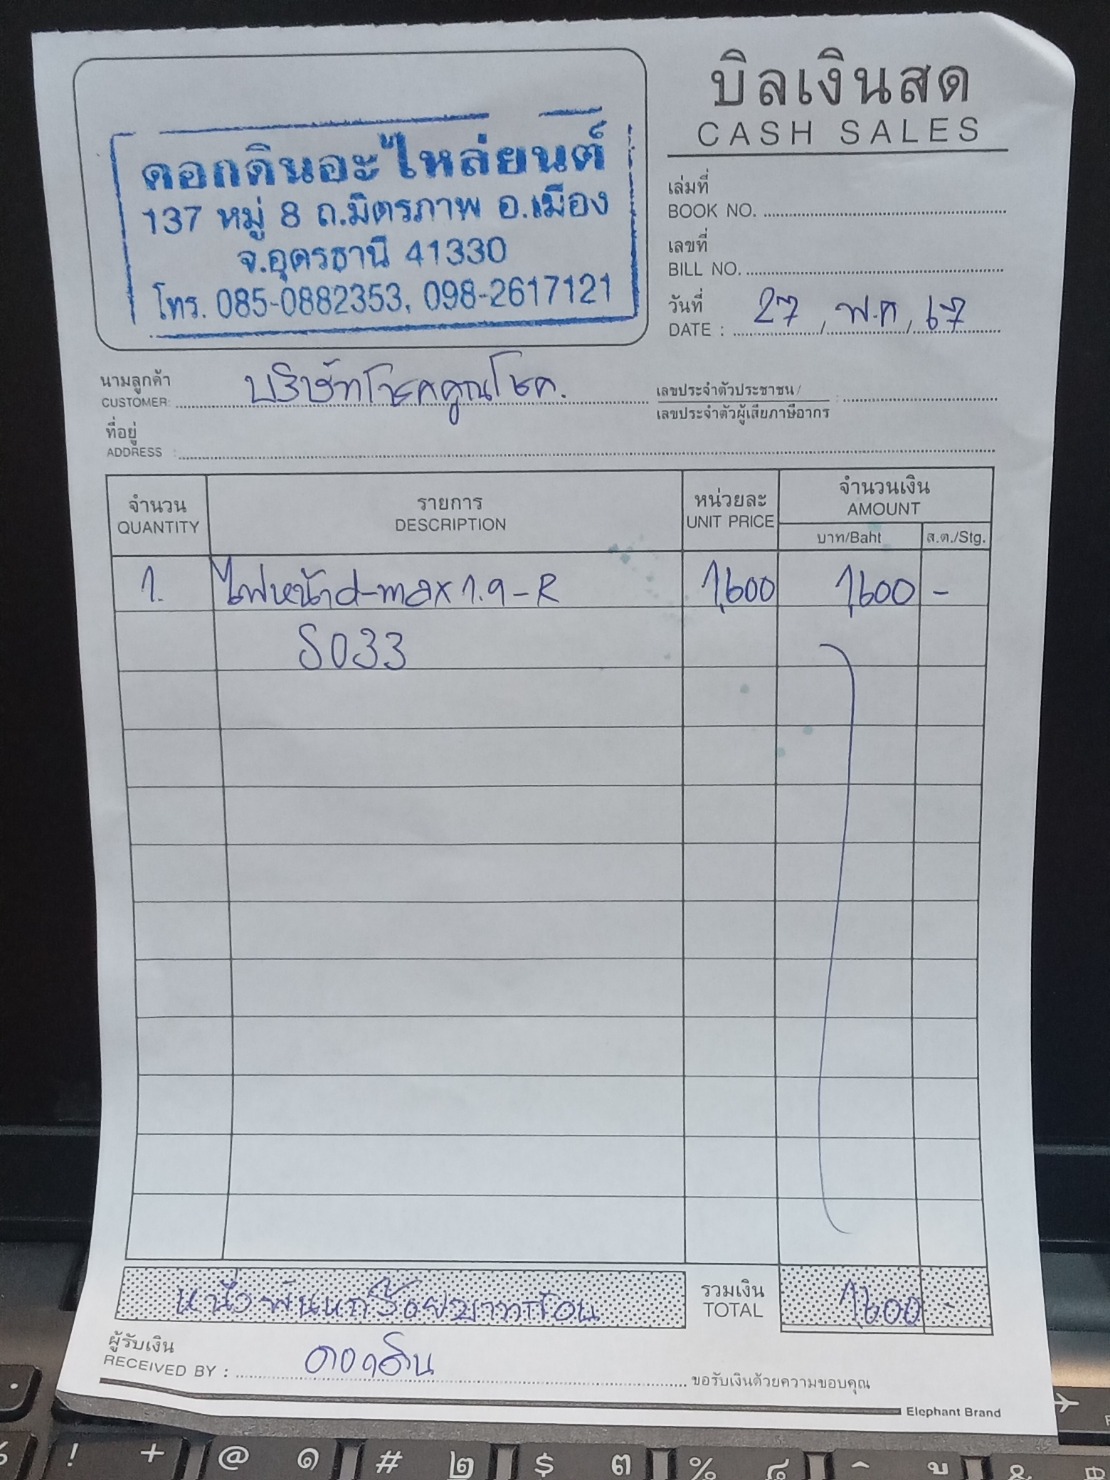 บิลเงินสด
CASH SALES
ดอกดินอะไหล่ยนต์
137 หมู่ 8 ถ.มิตรภาพ อ.เมือง
จ.อุดรธานี 41330
โทร. 085-0882353, 098-2617121
เล่มที่
BOOK NO.
เลขที่
BILL NO.
วันที่
DATE : 27, พ.ค, 67
นามลูกค้า
CUSTOMER: บริษัทโชคคูณโชค.
เลขประจำตัวประชาชน/
เลขประจำตัวผู้เสียภาษีอากร :
ที่อยู่
ADDRESS :
จำนวน รายการ หน่วยละ จำนวนเงิน
QUANTITY DESCRIPTION UNIT PRICE AMOUNT
บาท/Baht ส.ต./Stg.
1. ไฟหน้าd-max 1.9-R 1,600 1,600 -
S033
หนึ่งพันหกร้อยบาทถ้วน รวมเงิน 1,600 -
TOTAL
ผู้รับเงิน
RECEIVED BY : ดอกดิน ขอรับเงินด้วยความขอบคุณ
Elephant Brand
! + @ ๑ # ๒ $ ๓ % ๔